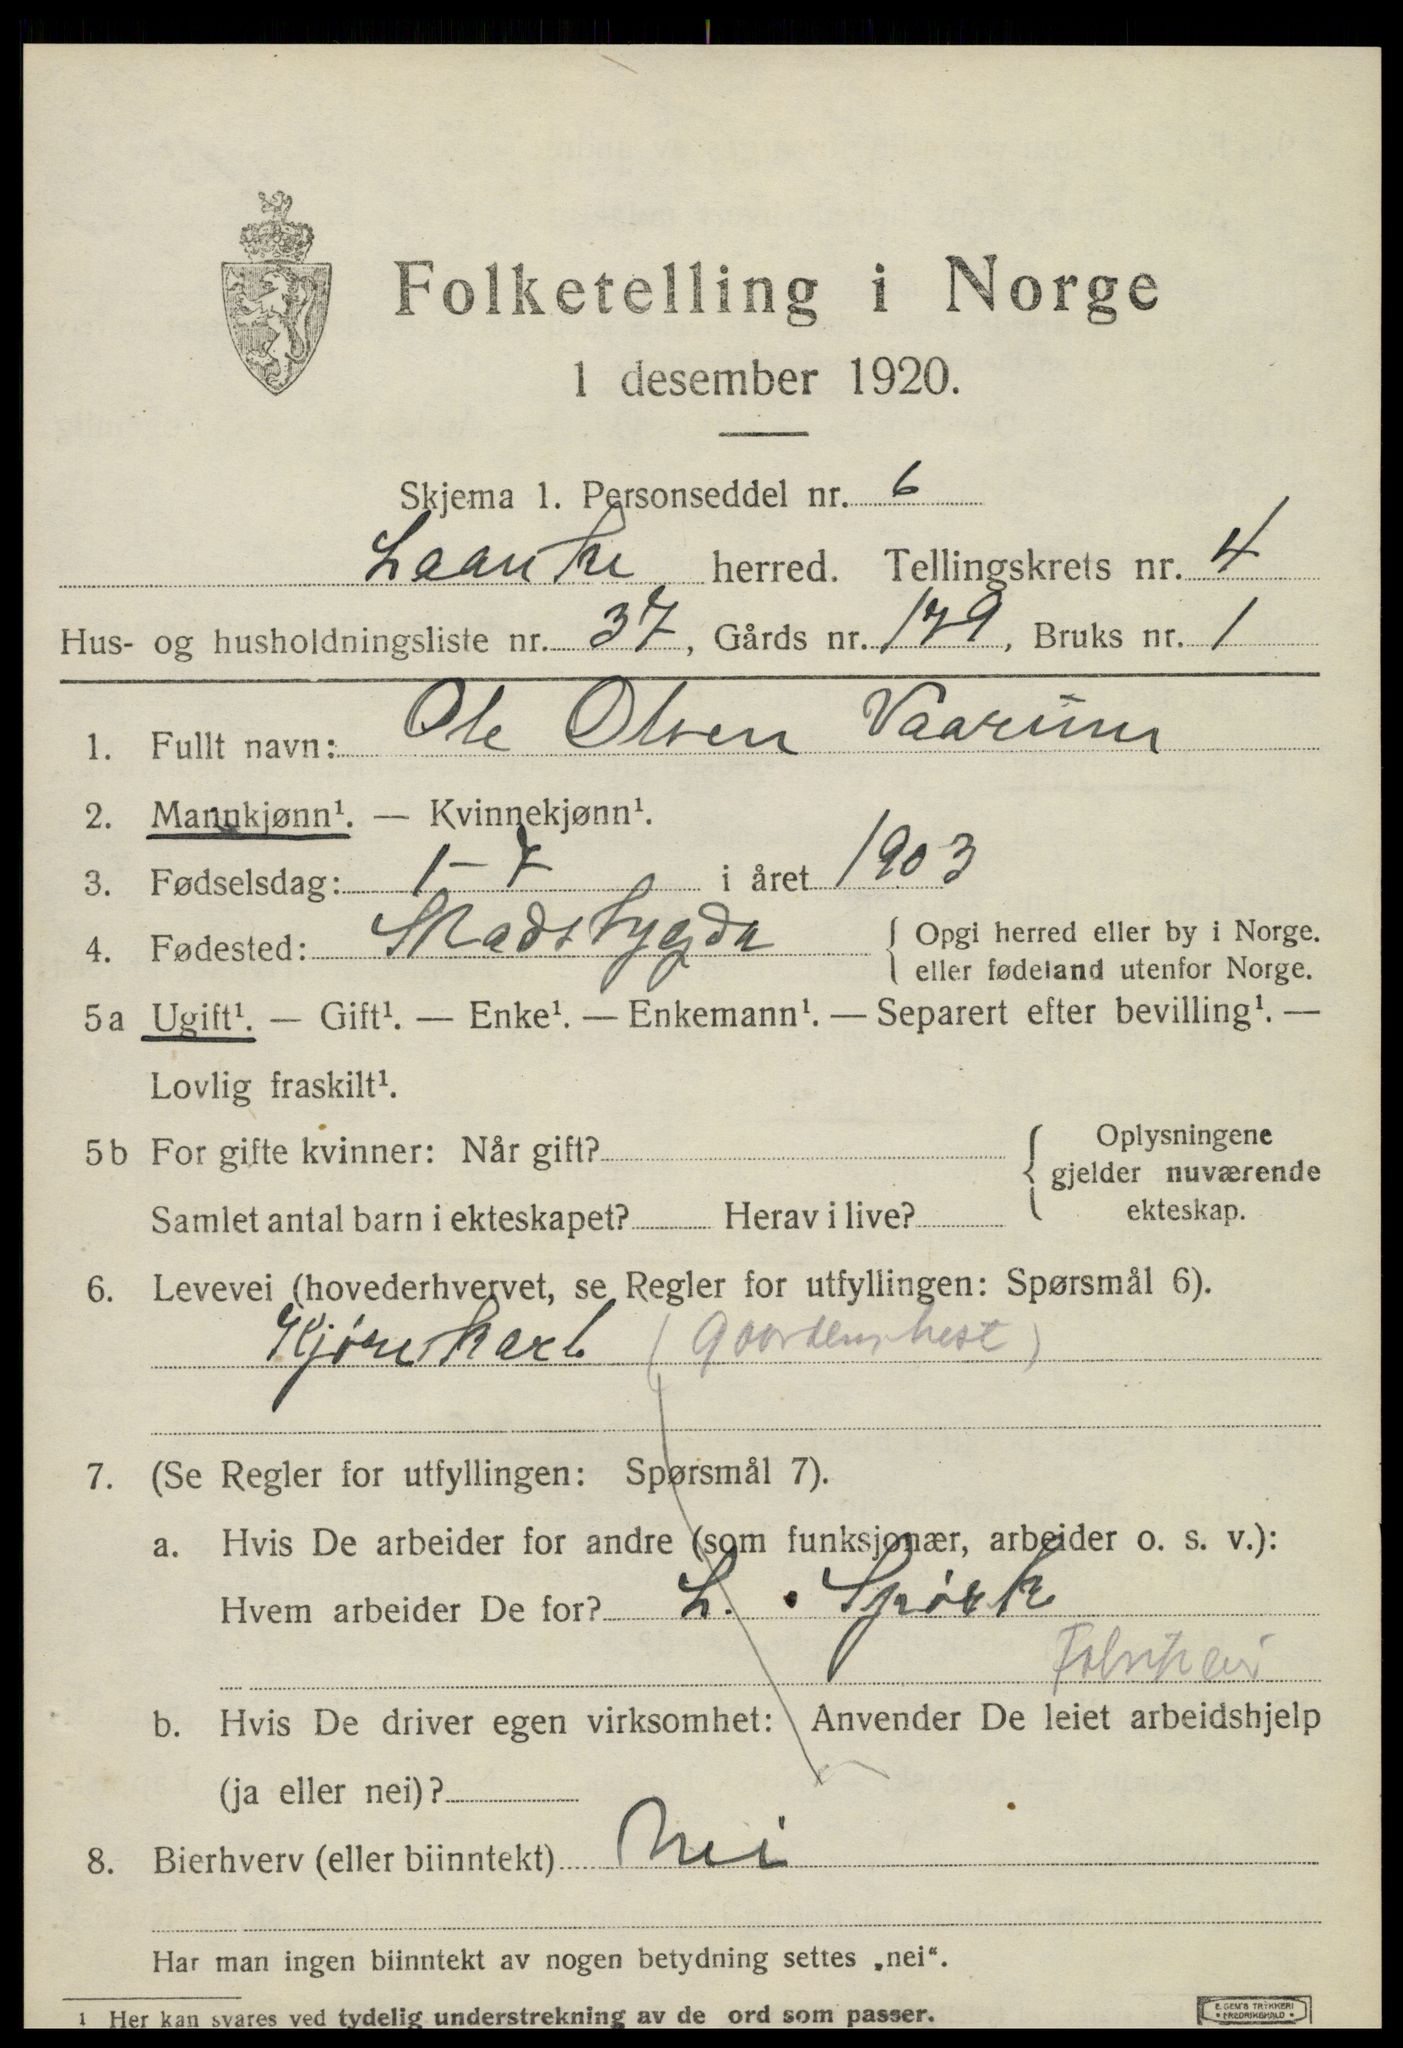 Folketelling i Norge
1 desember 1920.
Skjema 1. Personseddel nr. 6
Laanke herred. Tellingskrets nr. 4
Hus- og husholdningsliste nr. 37, Gårds nr. 179, Bruks nr. 1
1. Fullt navn: Ole Olsen Vaarum
2. Mannkjønn¹. — Kvinnekjønn¹.
3. Fødselsdag: 1-7 i året 1903
4. Fødested: Stadsbygda { Opgi herred eller by i Norge.
eller fødeland utenfor Norge.
5a Ugift¹. — Gift¹. — Enke¹. — Enkemann¹. — Separert efter bevilling¹. —
Lovlig fraskilt¹.
5b For gifte kvinner: Når gift?
Samlet antal barn i ekteskapet? Herav i live?
{ Oplysningene
gjelder nuværende
ekteskap.
6. Levevei (hovederhvervet, se Regler for utfyllingen: Spørsmål 6).
Kjørekarl (Gaardens hest)
7. (Se Regler for utfyllingen: Spørsmål 7).
a. Hvis De arbeider for andre (som funksjonær, arbeider o. s. v.):
Hvem arbeider De for? L. Spørk
b. Hvis De driver egen virksomhet: Anvender De leiet arbeidshjelp
(ja eller nei)?
8. Bierhverv (eller biinntekt) Nei
Har man ingen biinntekt av nogen betydning settes „nei“.
1 Her kan svares ved tydelig understrekning av de ord som passer.
E. GEM'S TRYKKERI
FREDRIKSHALD